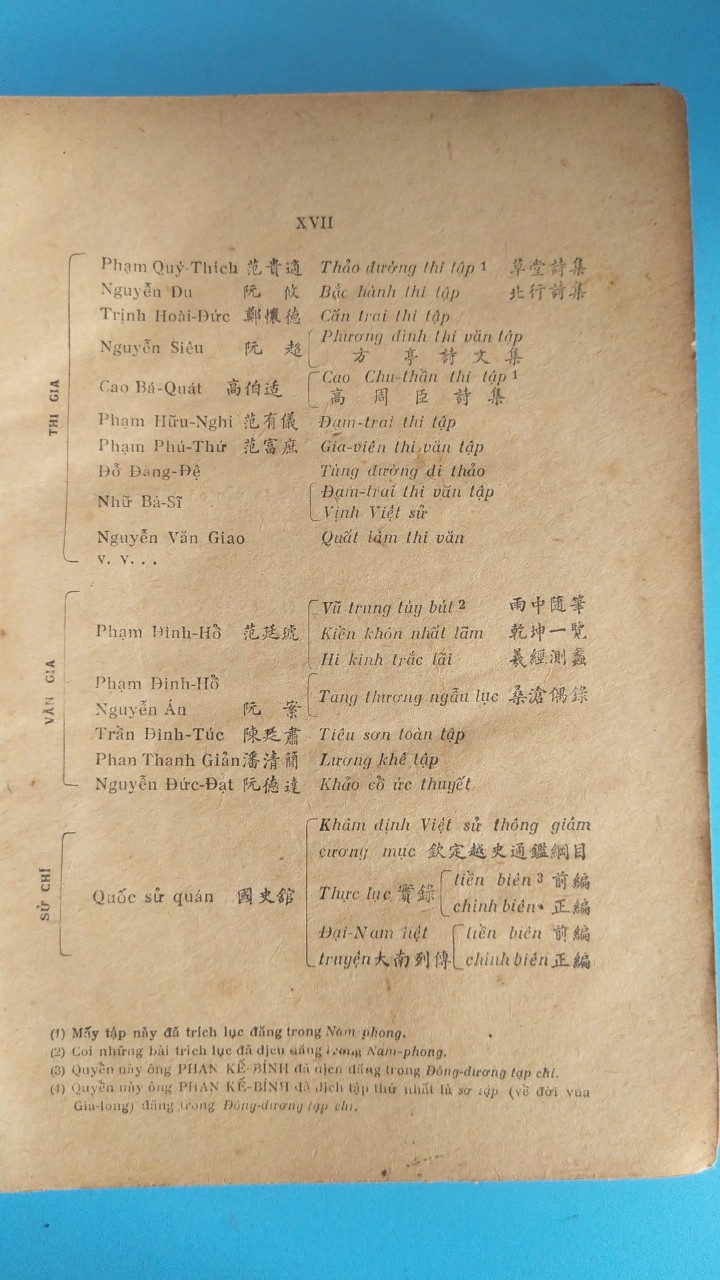 XVII
THI GIA
Phạm Quý-Thích 范貴適 Thảo đường thi tập 1 草堂詩集
Nguyễn Du 阮攸 Bắc hành thi tập 北行詩集
Trịnh Hoài-Đức 鄭懷德 Cấn trai thi tập
Nguyễn Siêu 阮超 Phương đình thi văn tập
方亭詩文集
Cao Bá-Quát 高伯适 Cao Chu-thần thi tập 1
高周臣詩集
Phạm Hữu-Nghi 范有儀 Đạm-trai thi tập
Phạm Phú-Thứ 范富庶 Gia-viên thi văn tập
Đỗ Đăng-Đệ Tùng đường di thảo
Nhữ Bá-Sĩ Đạm-trai thi văn tập
Vịnh Việt sử
Nguyễn Văn Giao Quất lâm thi văn
v. v. . .
VĂN GIA
Phạm Đình-Hổ 范廷琥 Vũ trung tùy bút 2 雨中隨筆
Kiền khôn nhất lãm 乾坤一覽
Hi kinh trắc lãi 羲經測蠡
Phạm Đình-Hổ
Nguyễn Án 阮案 Tang thương ngẫu lục 桑滄偶錄
Trần Đình-Túc 陳廷肅 Tiêu sơn toàn tập
Phan Thanh Giản 潘清簡 Lương khê tập
Nguyễn Đức-Đạt 阮德達 Khảo cổ ức thuyết
SỬ CHÍ
Quốc sử quán 國史舘 Khâm định Việt sử thông giám
cương mục 欽定越史通鑑綱目
Thực lục 實錄 tiền biên 3 前編
chính biên 4 正編
Đại-Nam liệt truyện 大南列傳 tiền biên 前編
chính biên 正編
(1) Mấy tập này đã trích lục đăng trong Nam-phong.
(2) Coi những bài trích lục đã dịch đăng trong Nam-phong.
(3) Quyển này ông PHAN KẾ-BÍNH đã dịch đăng trong Đông-dương tạp chí.
(4) Quyển này ông PHAN KẾ-BÍNH đã dịch tập thứ nhất là sơ tập (về đời vua
Gia-long) đăng trong Đông-dương tạp chí.